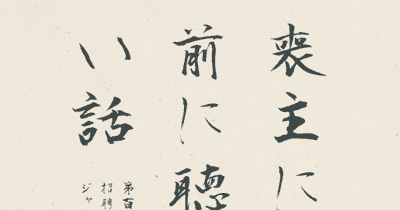 喪主に
前に聴
い話
第百
招聘
ジャ